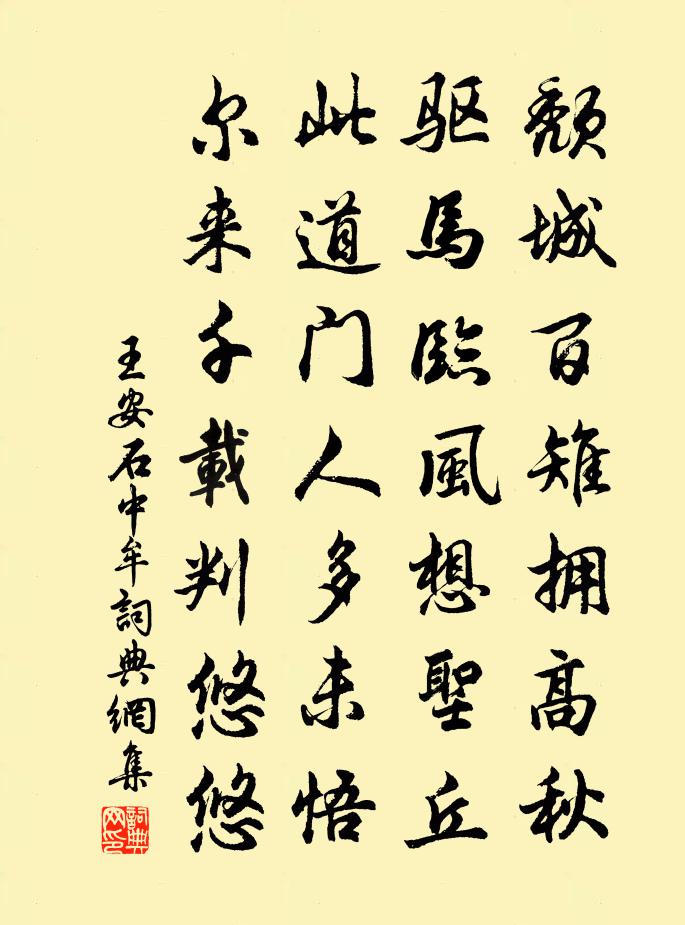 颓城百雉拥高秋
驱馬臨風想聖丘
此道门人多未悟
尔来千載判悠悠
王安石中牟詞典網集
詞典网印